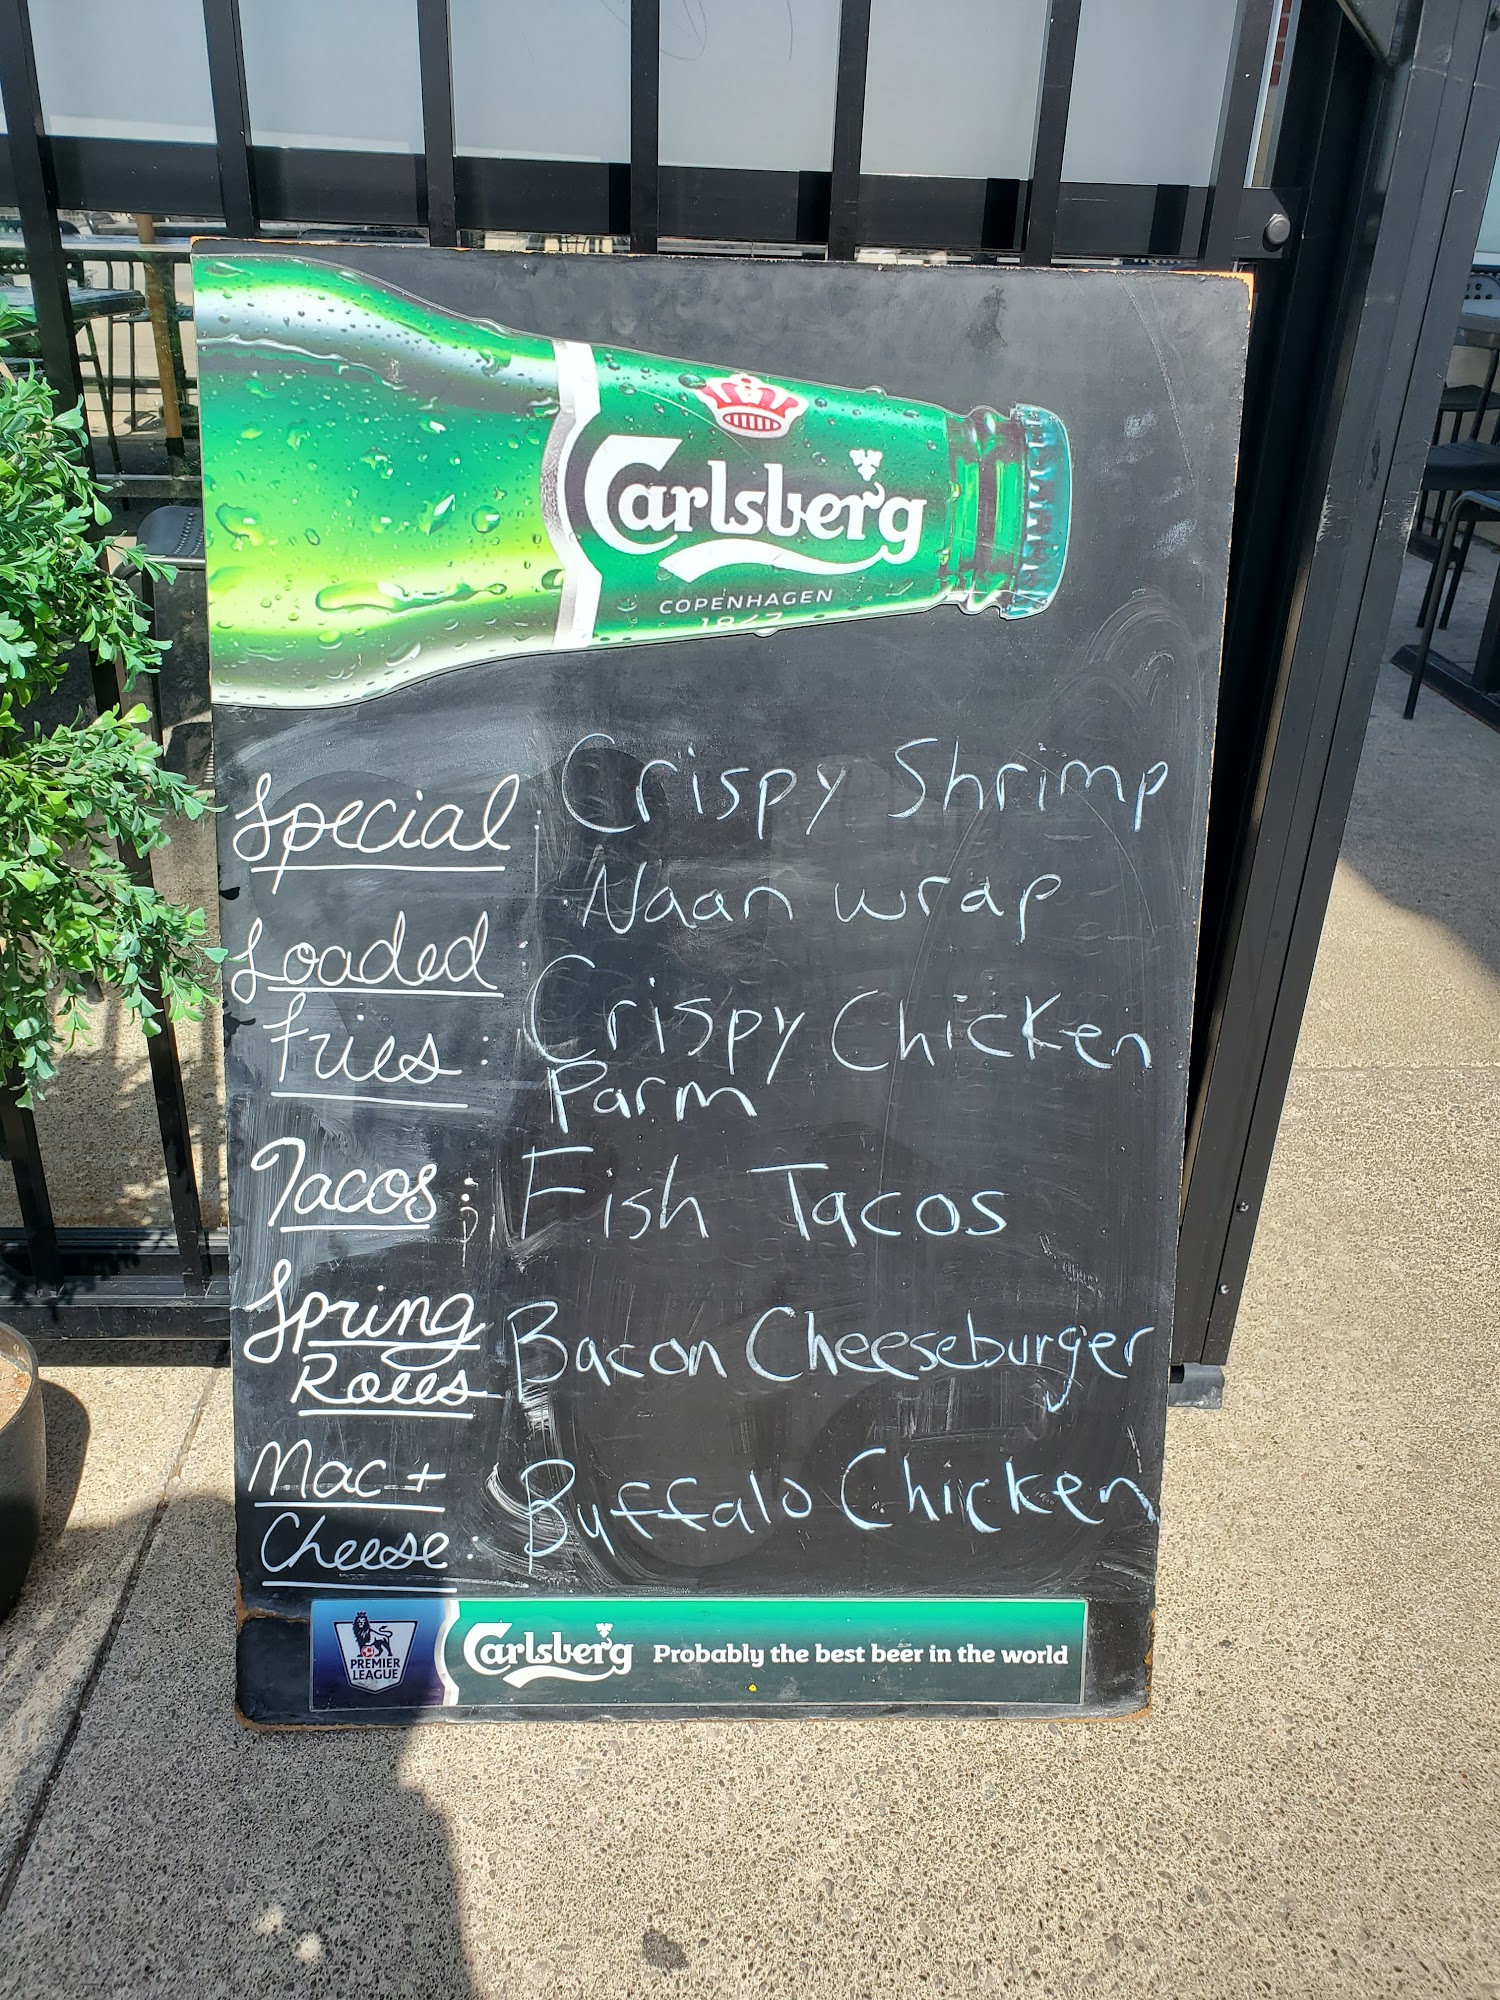 Carlsberg
COPENHAGEN
1847
Special : Crispy Shrimp
Naan wrap
Loaded
Fries : Crispy Chicken
Parm
Tacos : Fish Tacos
Spring
Rolls Bacon Cheeseburger
Mac +
Cheese : Buffalo Chicken
PREMIER
LEAGUE
Carlsberg Probably the best beer in the world